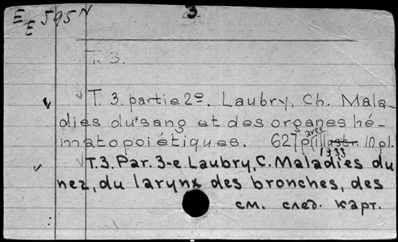 E E 595 N
3
T. 3.
T. 3. partie 2e. Laubry, Ch. Mala-
dies du sang et des organes hé-
matopoiétiques. 627 p. avec illustr. 10 pl.
1933
T.3. Par. 3-e Laubry, C. Maladies du
nez, du larynx des bronches, des
см. след. карт.